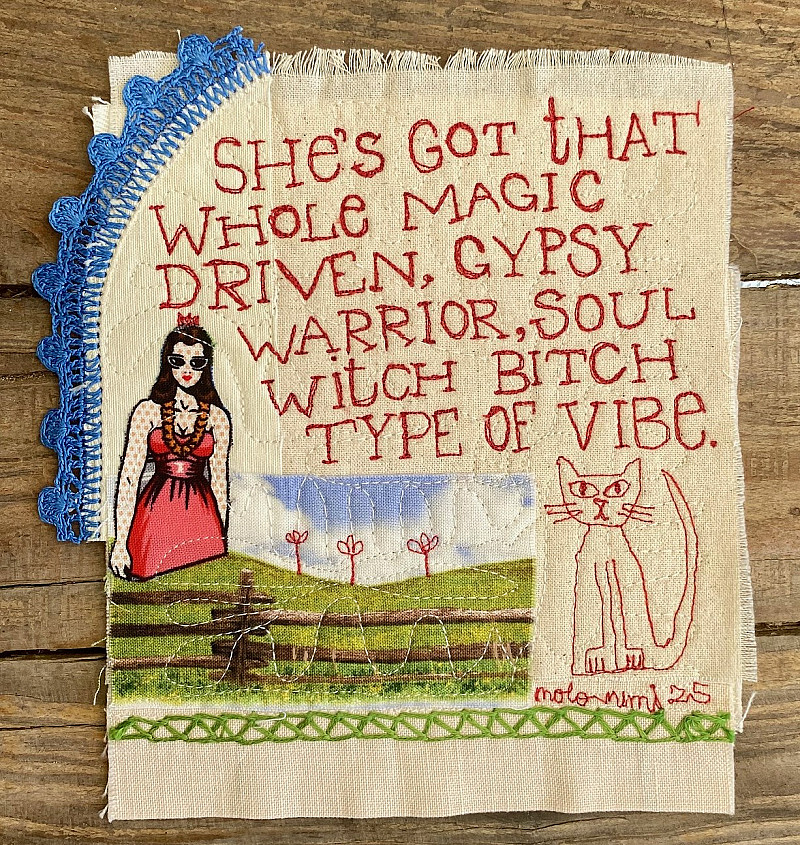 SHe'S GOT tHAT
WHOLe MAGIC
DRIVEN, GYPSY
WARRIOR, SOUL
WitCH BITCH
TYPE OF VIBe.
25